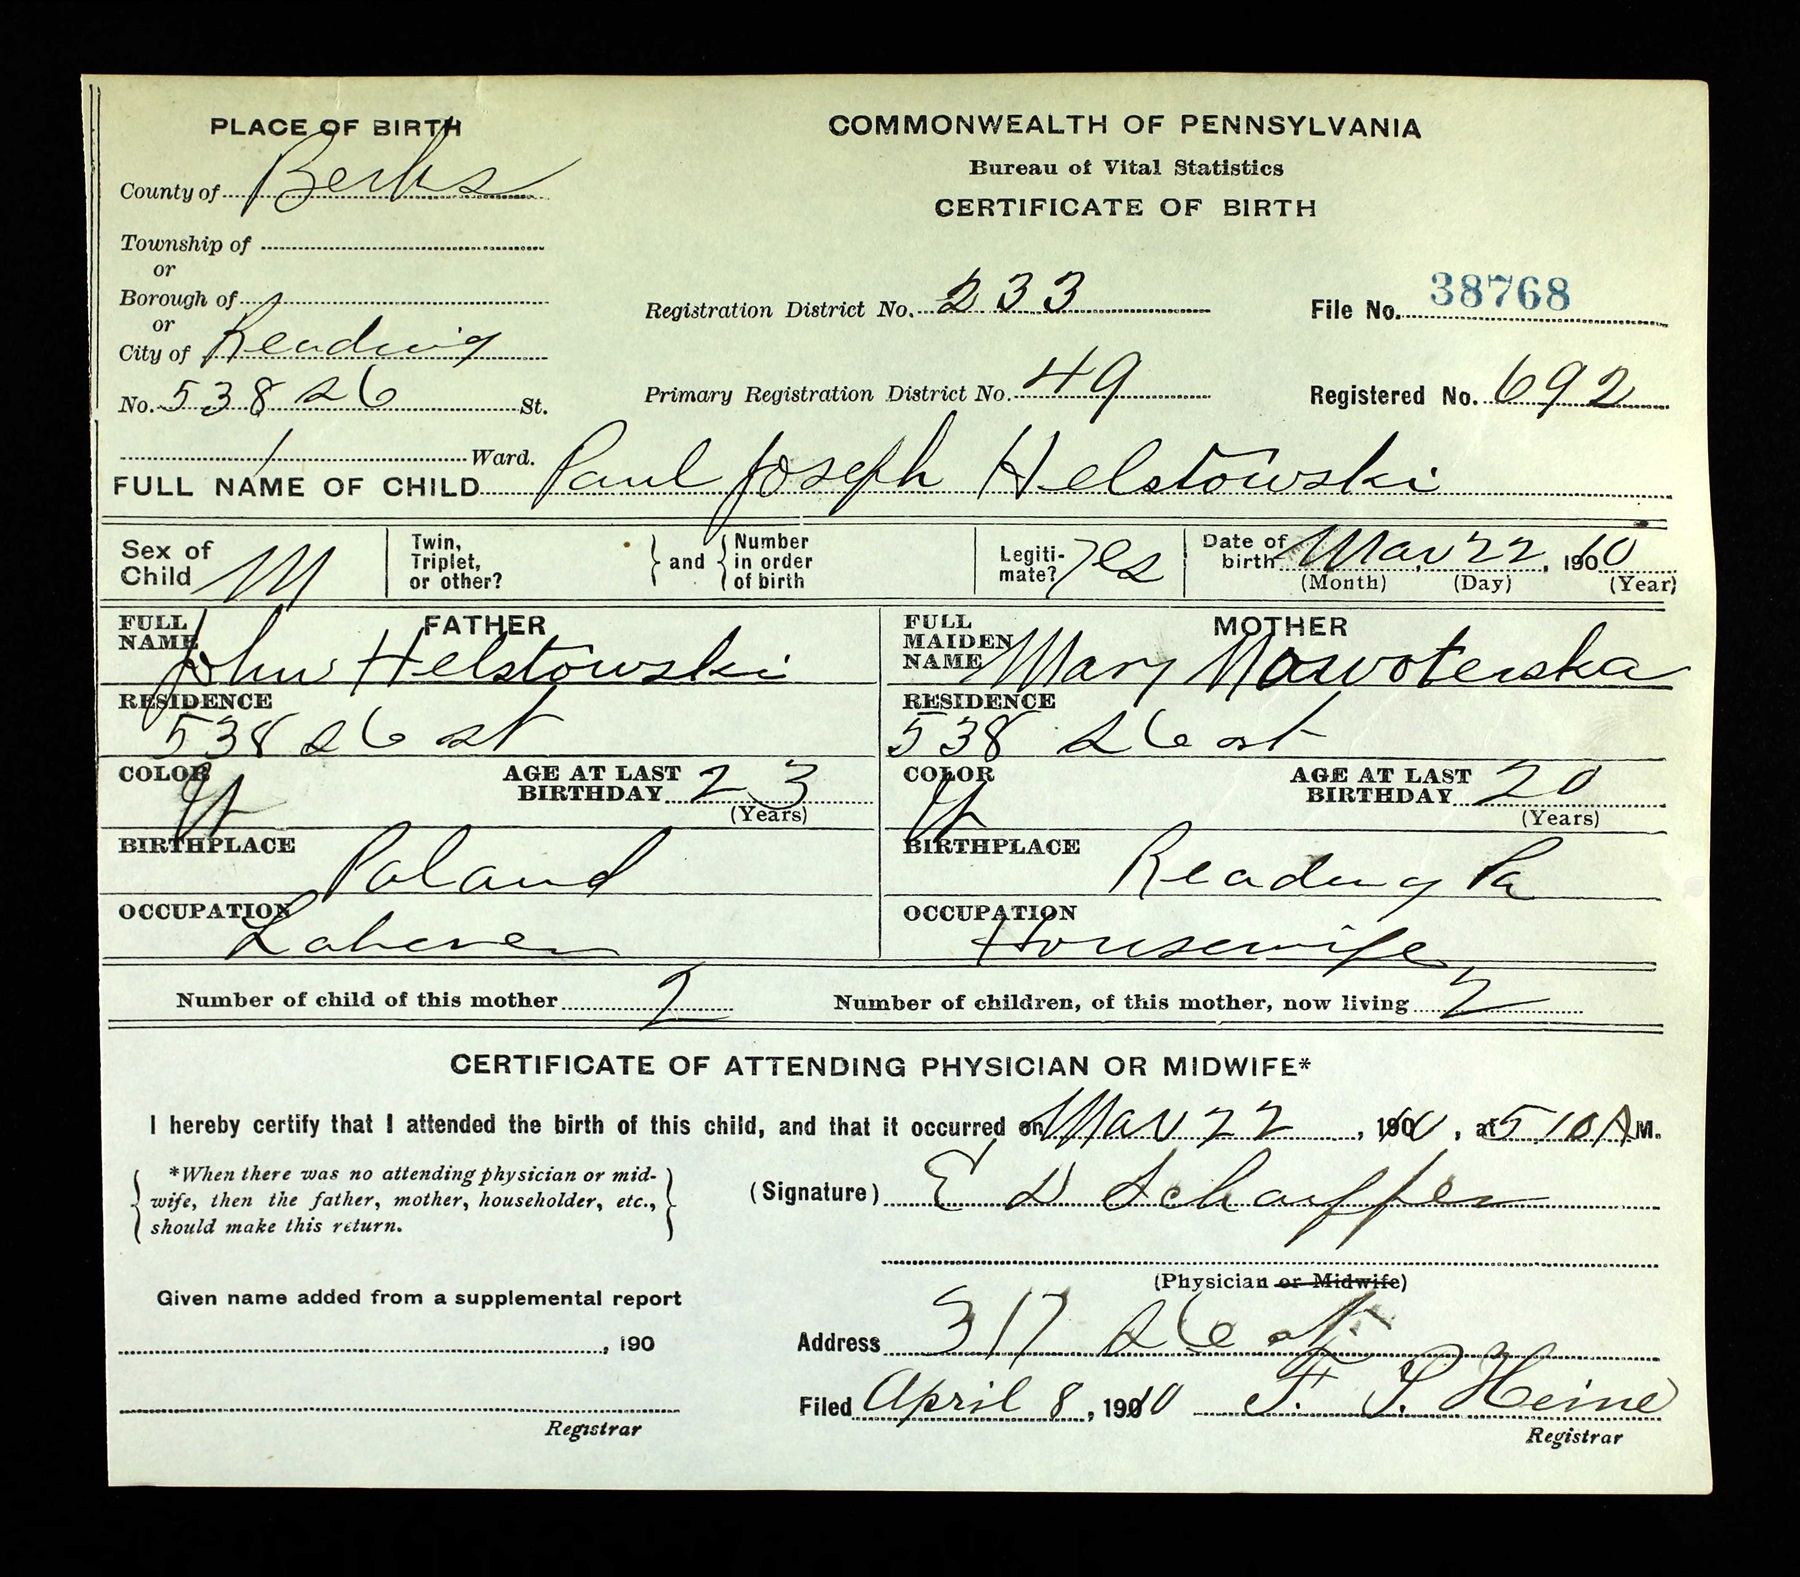 PLACE OF BIRTH
County of Berks
Township of
or
Borough of
or
City of Reading
No. 538 S 6 St.
1 Ward.
COMMONWEALTH OF PENNSYLVANIA
Bureau of Vital Statistics
CERTIFICATE OF BIRTH
Registration District No. 233
File No. 38768
Primary Registration District No. 49
Registered No. 692
FULL NAME OF CHILD Paul Joseph Helstowski
Sex of Child M
Twin, Triplet, or other?
and
Number in order of birth
Legitimate? Yes
Date of birth Mar 22, 1910
(Month) (Day) (Year)
FATHER
FULL NAME John Helstowski
RESIDENCE
538 S 6 st
COLOR W
AGE AT LAST BIRTHDAY 23
(Years)
BIRTHPLACE Poland
OCCUPATION Laborer
MOTHER
FULL MAIDEN NAME Mary Nowoterska
RESIDENCE
538 S 6 st
COLOR W
AGE AT LAST BIRTHDAY 20
(Years)
BIRTHPLACE Reading Pa
OCCUPATION Housewife
Number of child of this mother 2
Number of children, of this mother, now living 2
CERTIFICATE OF ATTENDING PHYSICIAN OR MIDWIFE*
I hereby certify that I attended the birth of this child, and that it occurred on Mar 22, 1910, at 5 10 A M.
*When there was no attending physician or mid-
wife, then the father, mother, householder, etc.,
should make this return.
(Signature) E D Schaeffer
(Physician or Midwife)
Given name added from a supplemental report
, 190
Registrar
Address 317 S 6 st
Filed April 8, 1910 F. P. Heine
Registrar